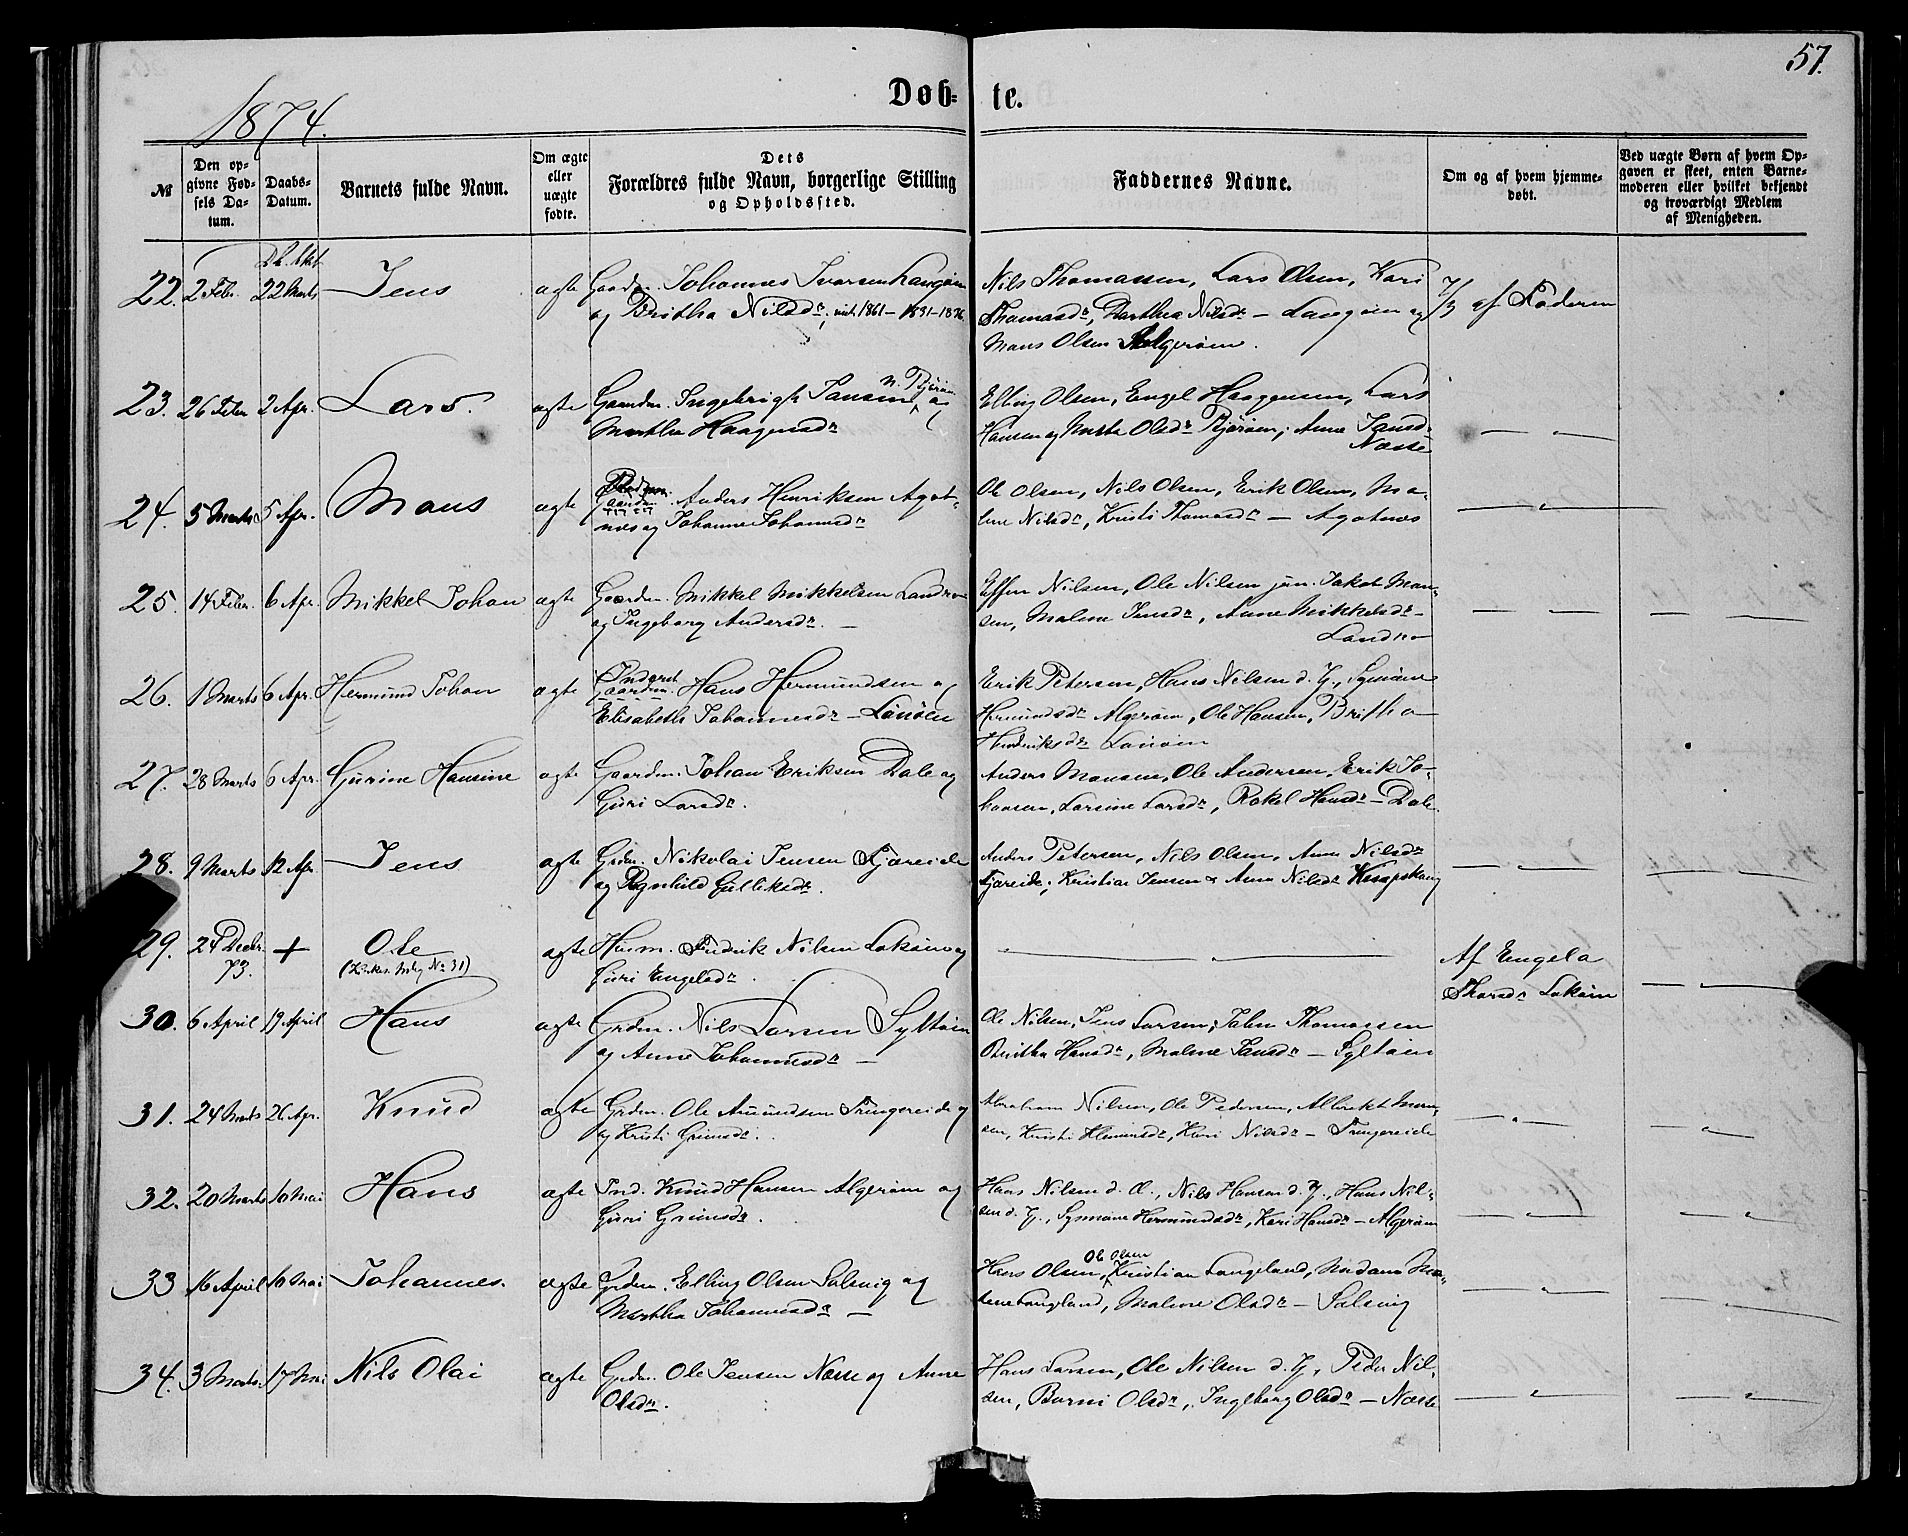 57.
1874.
Døb= te.
№
Den op-
givne Fød-
sels Da-
tum.
Daabs-
Datum.
Barnets fulde Navn.
Om ægte
eller
uægte
fødte.
Dets
Forældres fulde Navn, borgerlige Stilling
og Opholdssted.
Faddernes Navne.
Om og af hvem hjemme-
døbt.
Ved uægte Børn af hvem Op-
gaven er skeet, enten Barne-
moderen eller hvilket bekjendt
og troværdigt Medlem
af Menigheden.
22. 2 Febr. 22 Marts Jens ægte Gaardm. Johannes Iversen Langøen
og Britha Nilsdr.
Nils Thomassen, Lars Olsen, Kari
Thomasdr, Dorthea Nilsdr - Langøen og
Mons Olsen Algerøen.
7/3 af Faderen
23. 26 Febr 2 Apr. Lars. ægte Gaardm. Ingebrigt Jansen N. Bjørøen og
Martha Haagensdr
Elling Olsen, Engel Haagensen, Lars
Hansen og Marta Olsdr Bjørøen; Anna Jansdr
Næsse
24. 5 Marts 5 Apr. Mons ægte Gaardm. Anders Henriksen Agot-
næs og Johanne Johannesdr
Ole Olsen, Nils Olsen, Erik Olsen, Ma-
lene Nilsdr, Kristi Thomasdr - Agotnæs
25. 14 Febr. 6 Apr. Mikkel Johan ægte Gaardm. Mikkel Mikkelsen Landro
og Ingeborg Andersdr. -
Effen Nilsen, Ole Nilsen jun. Jakob Mon-
sen, Malene Jensdr, Anne Mikkelsdr -
Landro
26. 1 Marts 6 Apr. Hermund Johan ægte Inderst
Gaardm. Hans Hermundsen og
Elisabeth Johannesdr - Lønøen
Erik Petersen, Hans Nilsen d. Y., Symøne
Hermundsdr Algerøen, Ole Hansen, Britha
Hendriksdr Lønøen
27. 28 Marts 6 Apr. Gurine Hansine ægte Gaardm. Johan Eriksen Dale og
Guri Larsdr.
Anders Monsen, Ole Andersen, Erik Jo-
hansen, Larsine Larsdr, Rakel Hansdr - Dale
28. 9 Marts 12 Apr. Jens ægte Grdm. Nikolai Jensen Fjæreide
og Ragnhild Gulliksdr.
Anders Petersen, Nils Olsen, Anna Nilsdr
Fjæreide; Kristian Jensen & Anna Nilsdr Knapskog
29. 24 Decbr. + Ole ægte Husm. Fredrik Nilsen Lokøen og
73. Guri Engelsdr.
Af Engela
Thorsdr Lokøen
30. 6 April 19 April Hans ægte Grdm. Nils Larsen Syltøen
og Anne Johannesdr -
Ole Nilsen, Jens Larsen, John Thomassen
Britha Hansdr, Malene Jansdr - Syltøen
31. 24 Marts 26 Apr. Knud ægte Grdm. Ole Amundsen Tungereide og
og Kristi Grimsdr.
Abraham Nilsen, Ole Pedersen, Albrekt Mon-
sen, Kristi Klemersdr, Kari Nilsdr - Tungereide
32. 20 Marts 10 Mai Hans ægte Ind. Knud Hansen Algerøen og
Guri Grimsdr.
Hans Nilsen d. æ., Nils Hansen d. Y., Hans Nil-
sen d. Y., Symøne Hermundsdr, Kari Hansdr - Algerøen
33 16 April 10 Mai Johannes. ægte Grdm. Elling Olsen Solsvig og
Martha Johannesdr -
Ole Olsen
Hans Olsen, Kristian Langeland, Madam Ma-
rene Langeland, Malene Olsdr - Solsvig
34. 3 Marts. 17 Mai Nils Olai ægte Grdm. Ole Jensen Næsse og Anne
Olsdr.
Hans Larsen, Ole Nilsen d. Y., Peder Nil-
sen, Barni Olsdr, Ingeborg Olsdr - Næsse